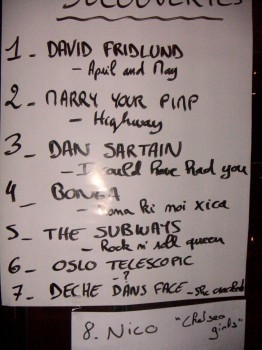 DECOUVERTES
1_ DAVID FRIDLUND
- April and May
2_ MARRY YOUR PIMP
- Highway
3_ DAN SARTAIN
- I could have had you
4_ BONGA
- ki moi xica
5_ THE SUBWAYS
- Rock n' roll queen
6_ OSLO TELESCOPIC
- ?
7_ DECHE DANS FACE - She
8. Nico "Chelsea
girls"